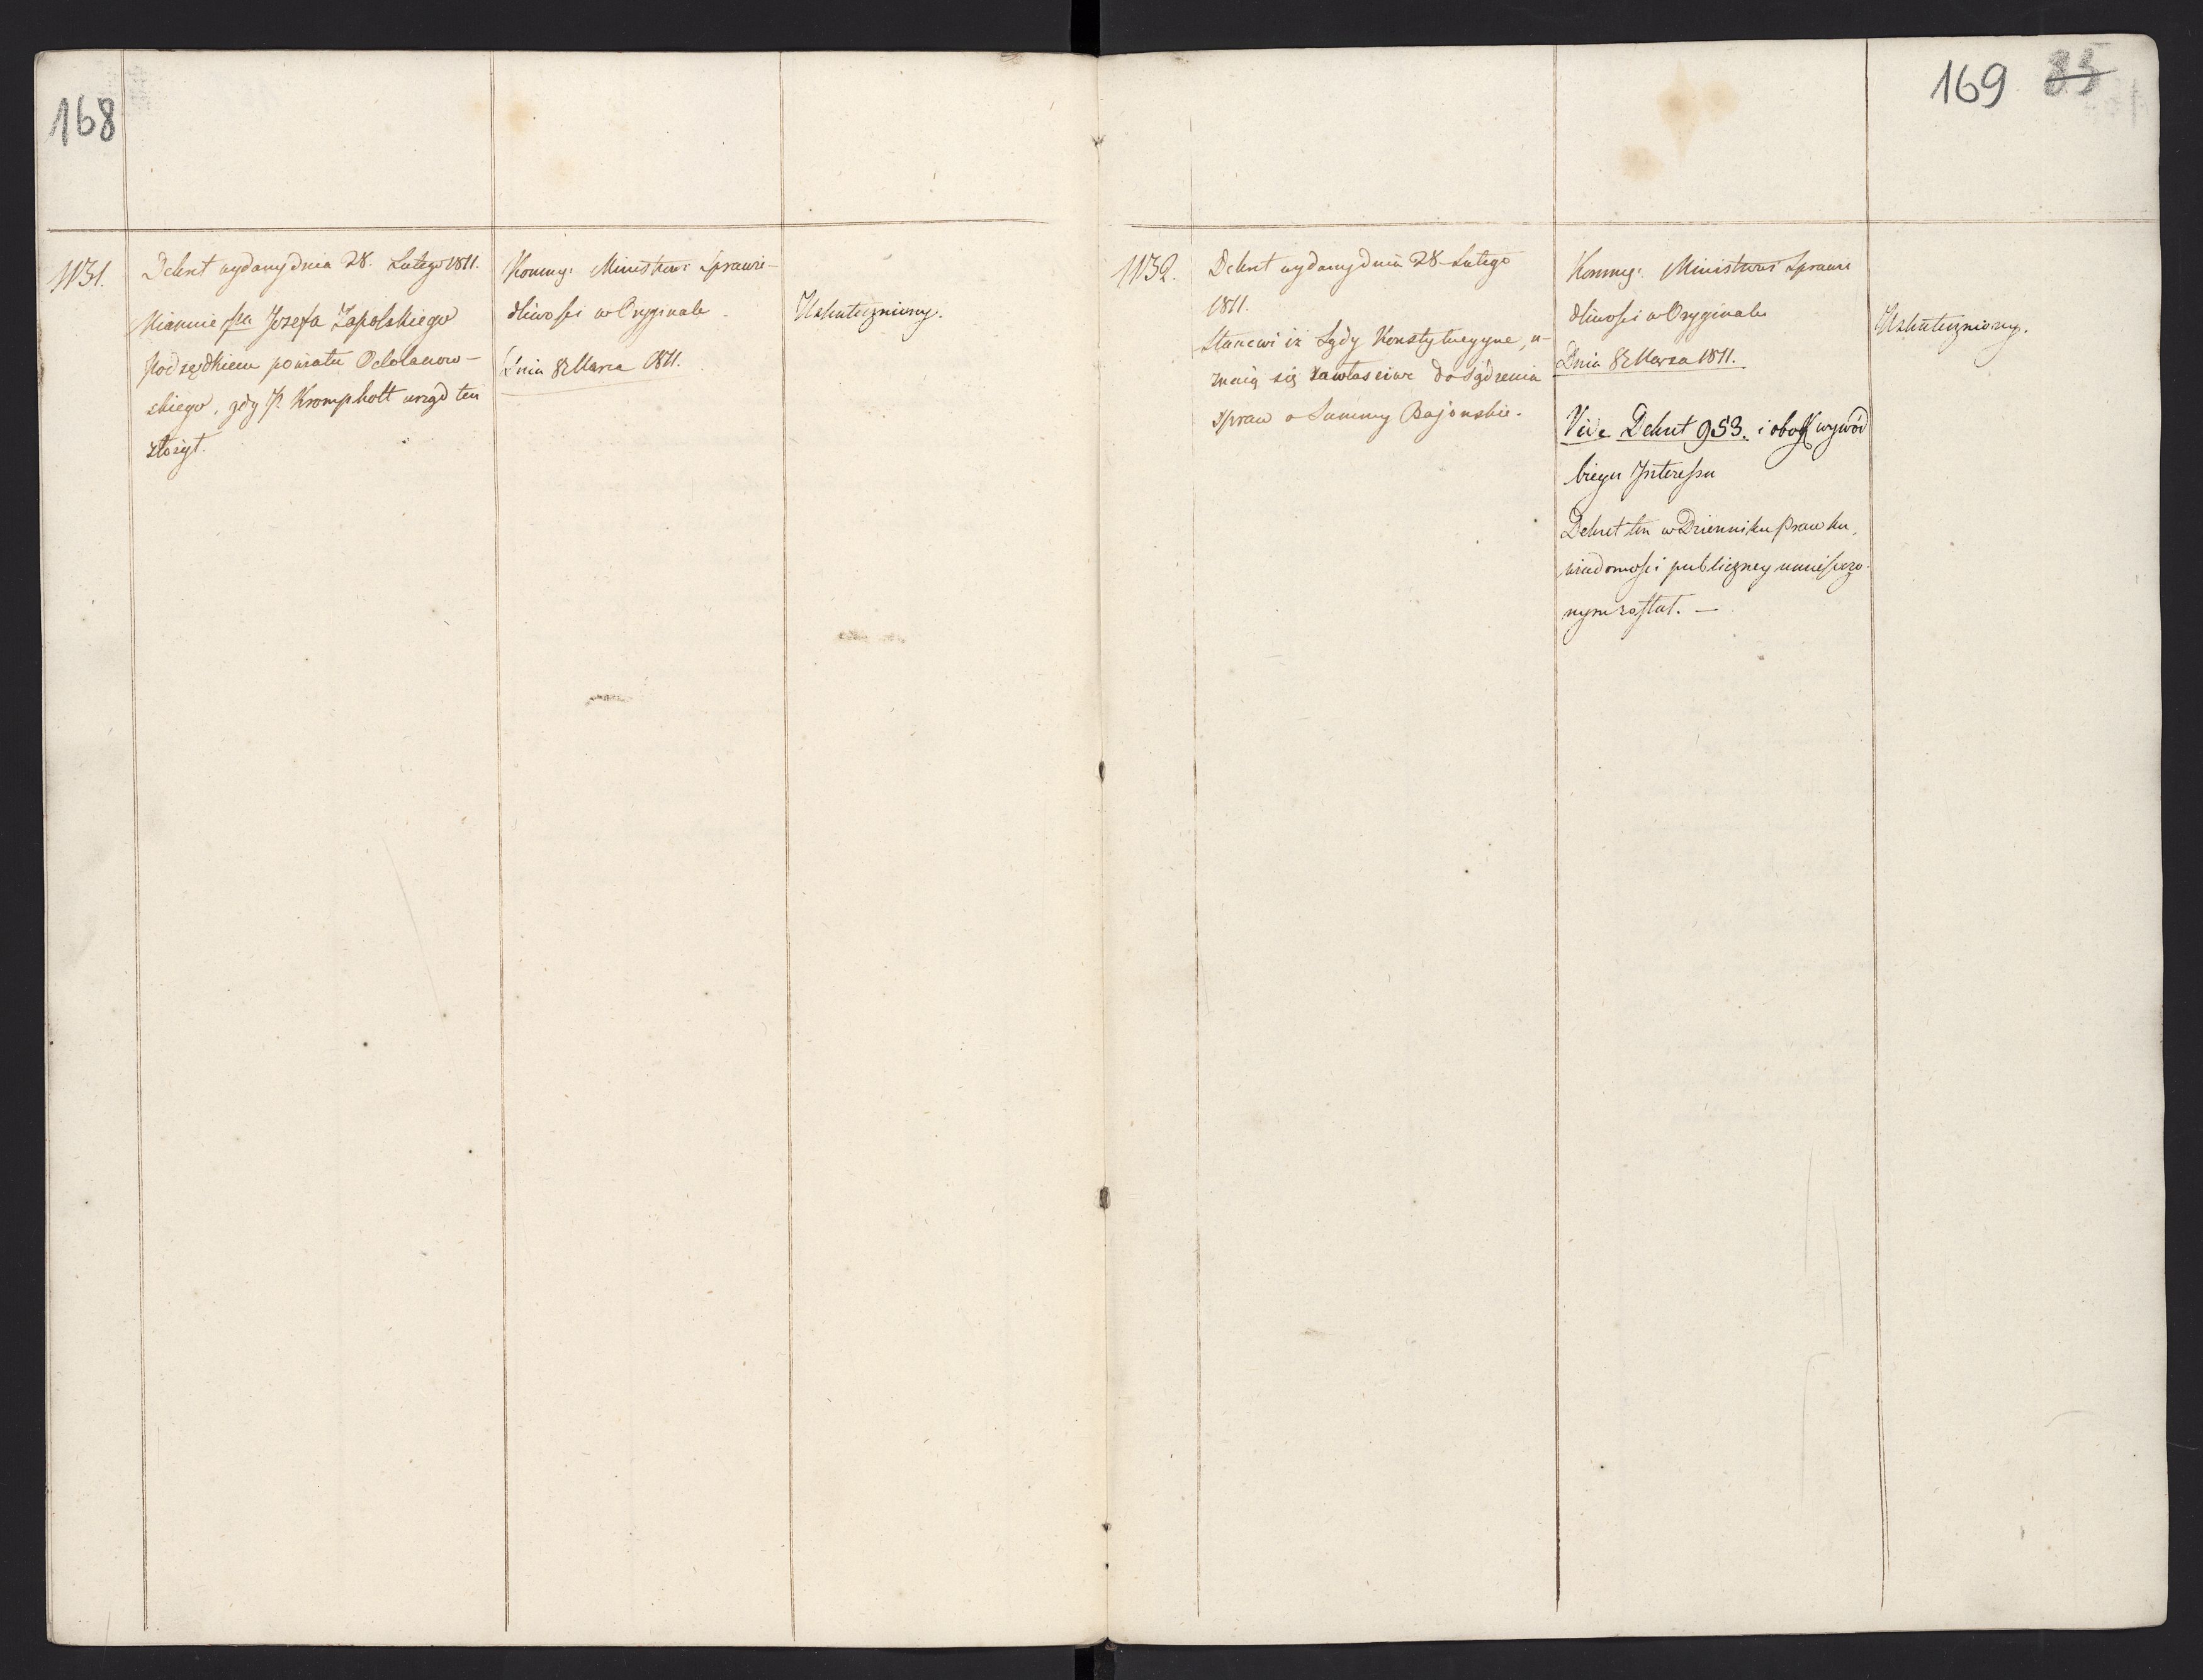 168
1131.
Dekret wydany dnia 28. Lutego 1811.
Mianuie JPa Jozefa Zapolskiego
Podsędkiem powiatu Odolanow-
skiego, gdy JP. Krompholt urząd ten
złożył.
Kommu: Ministrowi Sprawie-
dliwości w Oryginale
Dnia 8 Marca 1811.
Uskuteczniony.
169 85
1132.
Dekret wydany dnia 28 Lutego
1811.
Stanowi iż Sądy Konstytucyyne, u-
znaią się za właściwe do sądzenia
spraw o Summy Bajońskie.
Kommu: Ministrowi Sprawie
dliwości w Oryginale
Dnia 8 Marca 1811.
Vide Dekret 953. i obok wywód
biegu Interessu
Dekret ten w Dzienniku Praw ku
wiadomości publiczney umieszczo-
nym został. —
Uskuteczniony.